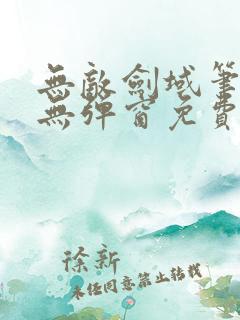 無敵劍域筆
無彈窗免費
徐新
未任同意禁止轉載